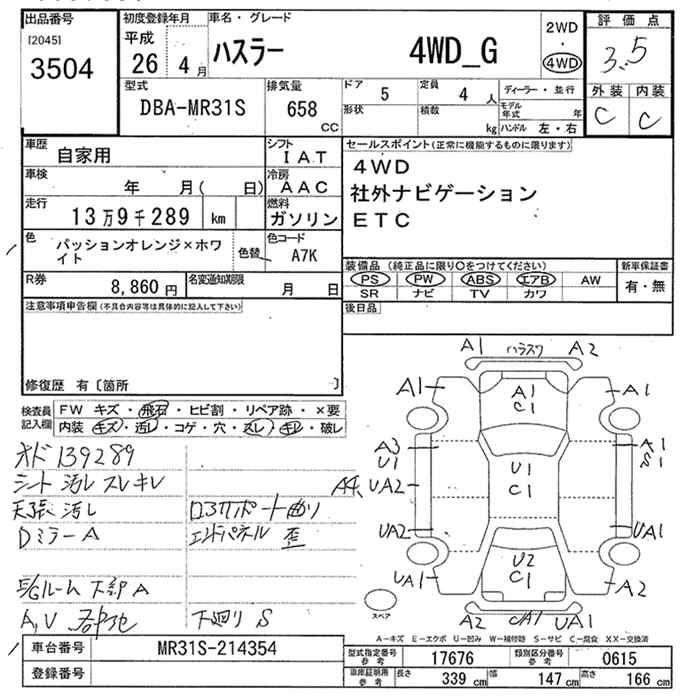 出品番号
[2045]
3504
初度登録年月
平成
26 年 4 月
車名・グレード
ハスラー 4WD_G
2WD
・
4WD
評価点
3.5
外装 内装
C C
型式
DBA-MR31S
排気量
658 CC
ドア 5
形状
定員 4 人
積数 kg
ディーラー・並行
モデル年式 年
ハンドル 左・右
車歴
自家用
シフト
IAT
車検
年 月( 日)
冷房
AAC
走行
13万9千289 km
燃料
ガソリン
色
パッションオレンジ×ホワイト
色替
色コード
A7K
セールスポイント(正常に機能するものに限ります)
4WD
社外ナビゲーション
ETC
R券
8,860 円
名変通知期限
月 日
装備品 (純正品に限り○をつけてください)
PS PW ABS エアB AW
SR ナビ TV カワ
新車保証書
有・無
後日品
注意事項申告欄(不具合内容等は具体的に記入して下さい)
修復歴 有〔箇所 〕
検査員記入欄
FW キズ・飛石・ヒビ割・リペア跡・×要
内装 キズ・汚レ・コゲ・穴・スレ・キレ・破レ
オド 139289
シート 汚レ スレ キレ
天張 汚レ
Dミラー A
コアサポート 曲り
エンドパネル 歪
ルーム 下部 A
A,V
下廻り S
A1 ハラスワ A2
A1 A1 A1
C1
A3 A1
U1 S1
U1
C1
A4, UA2
UA2 UA1
U2
C1
UA1 A1
A2 UA1 UA1
スペア
A−キズ E−エクボ U−凹み W−補修跡 S−サビ C−腐食 XX−交換済
車台番号
MR31S-214354
登録番号
型式指定番号 参考
17676
類別区分番号 参考
0615
車庫証明用 参考
長さ 339 cm
幅 147 cm
高さ 166 cm